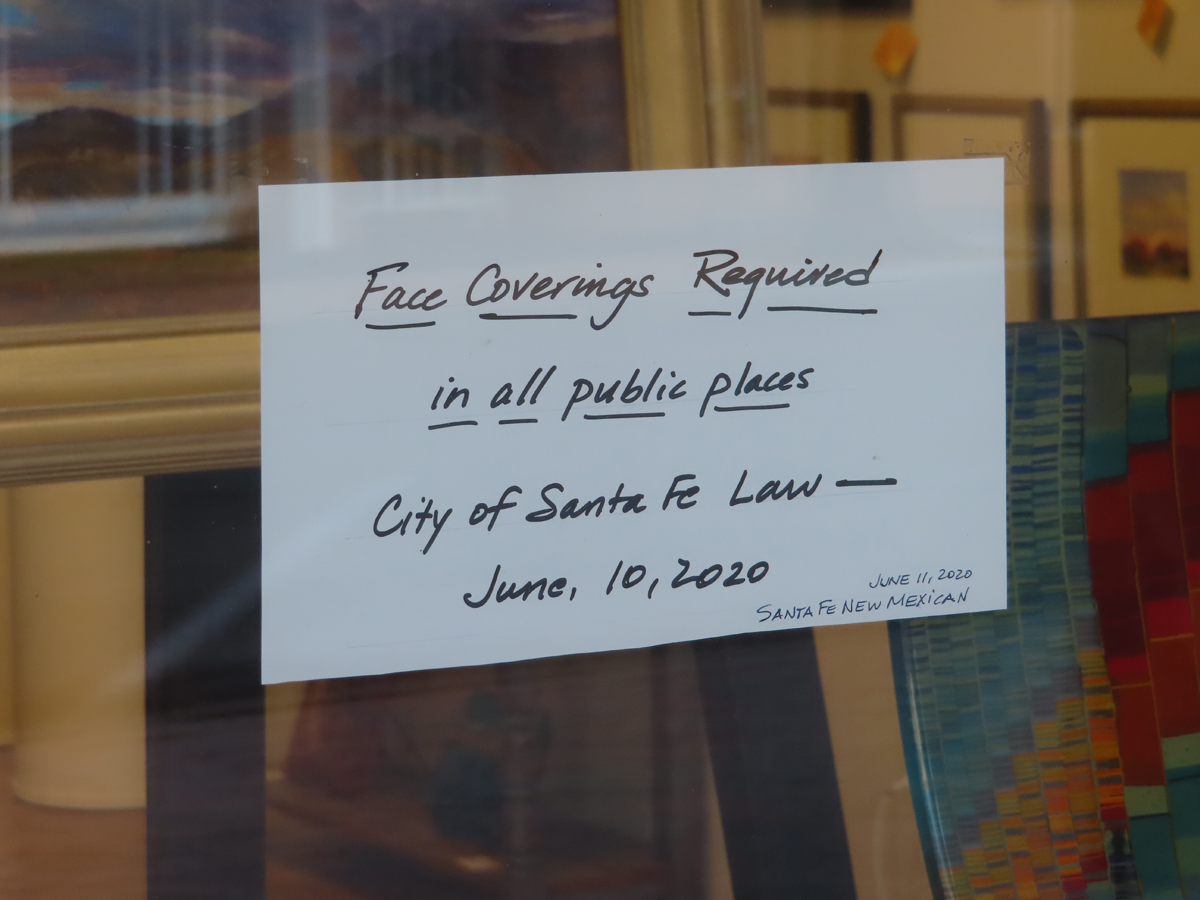 Face Coverings Required
in all public places
City of Santa Fe Law —
June, 10, 2020
JUNE 11, 2020
SANTA FE NEW MEXICAN